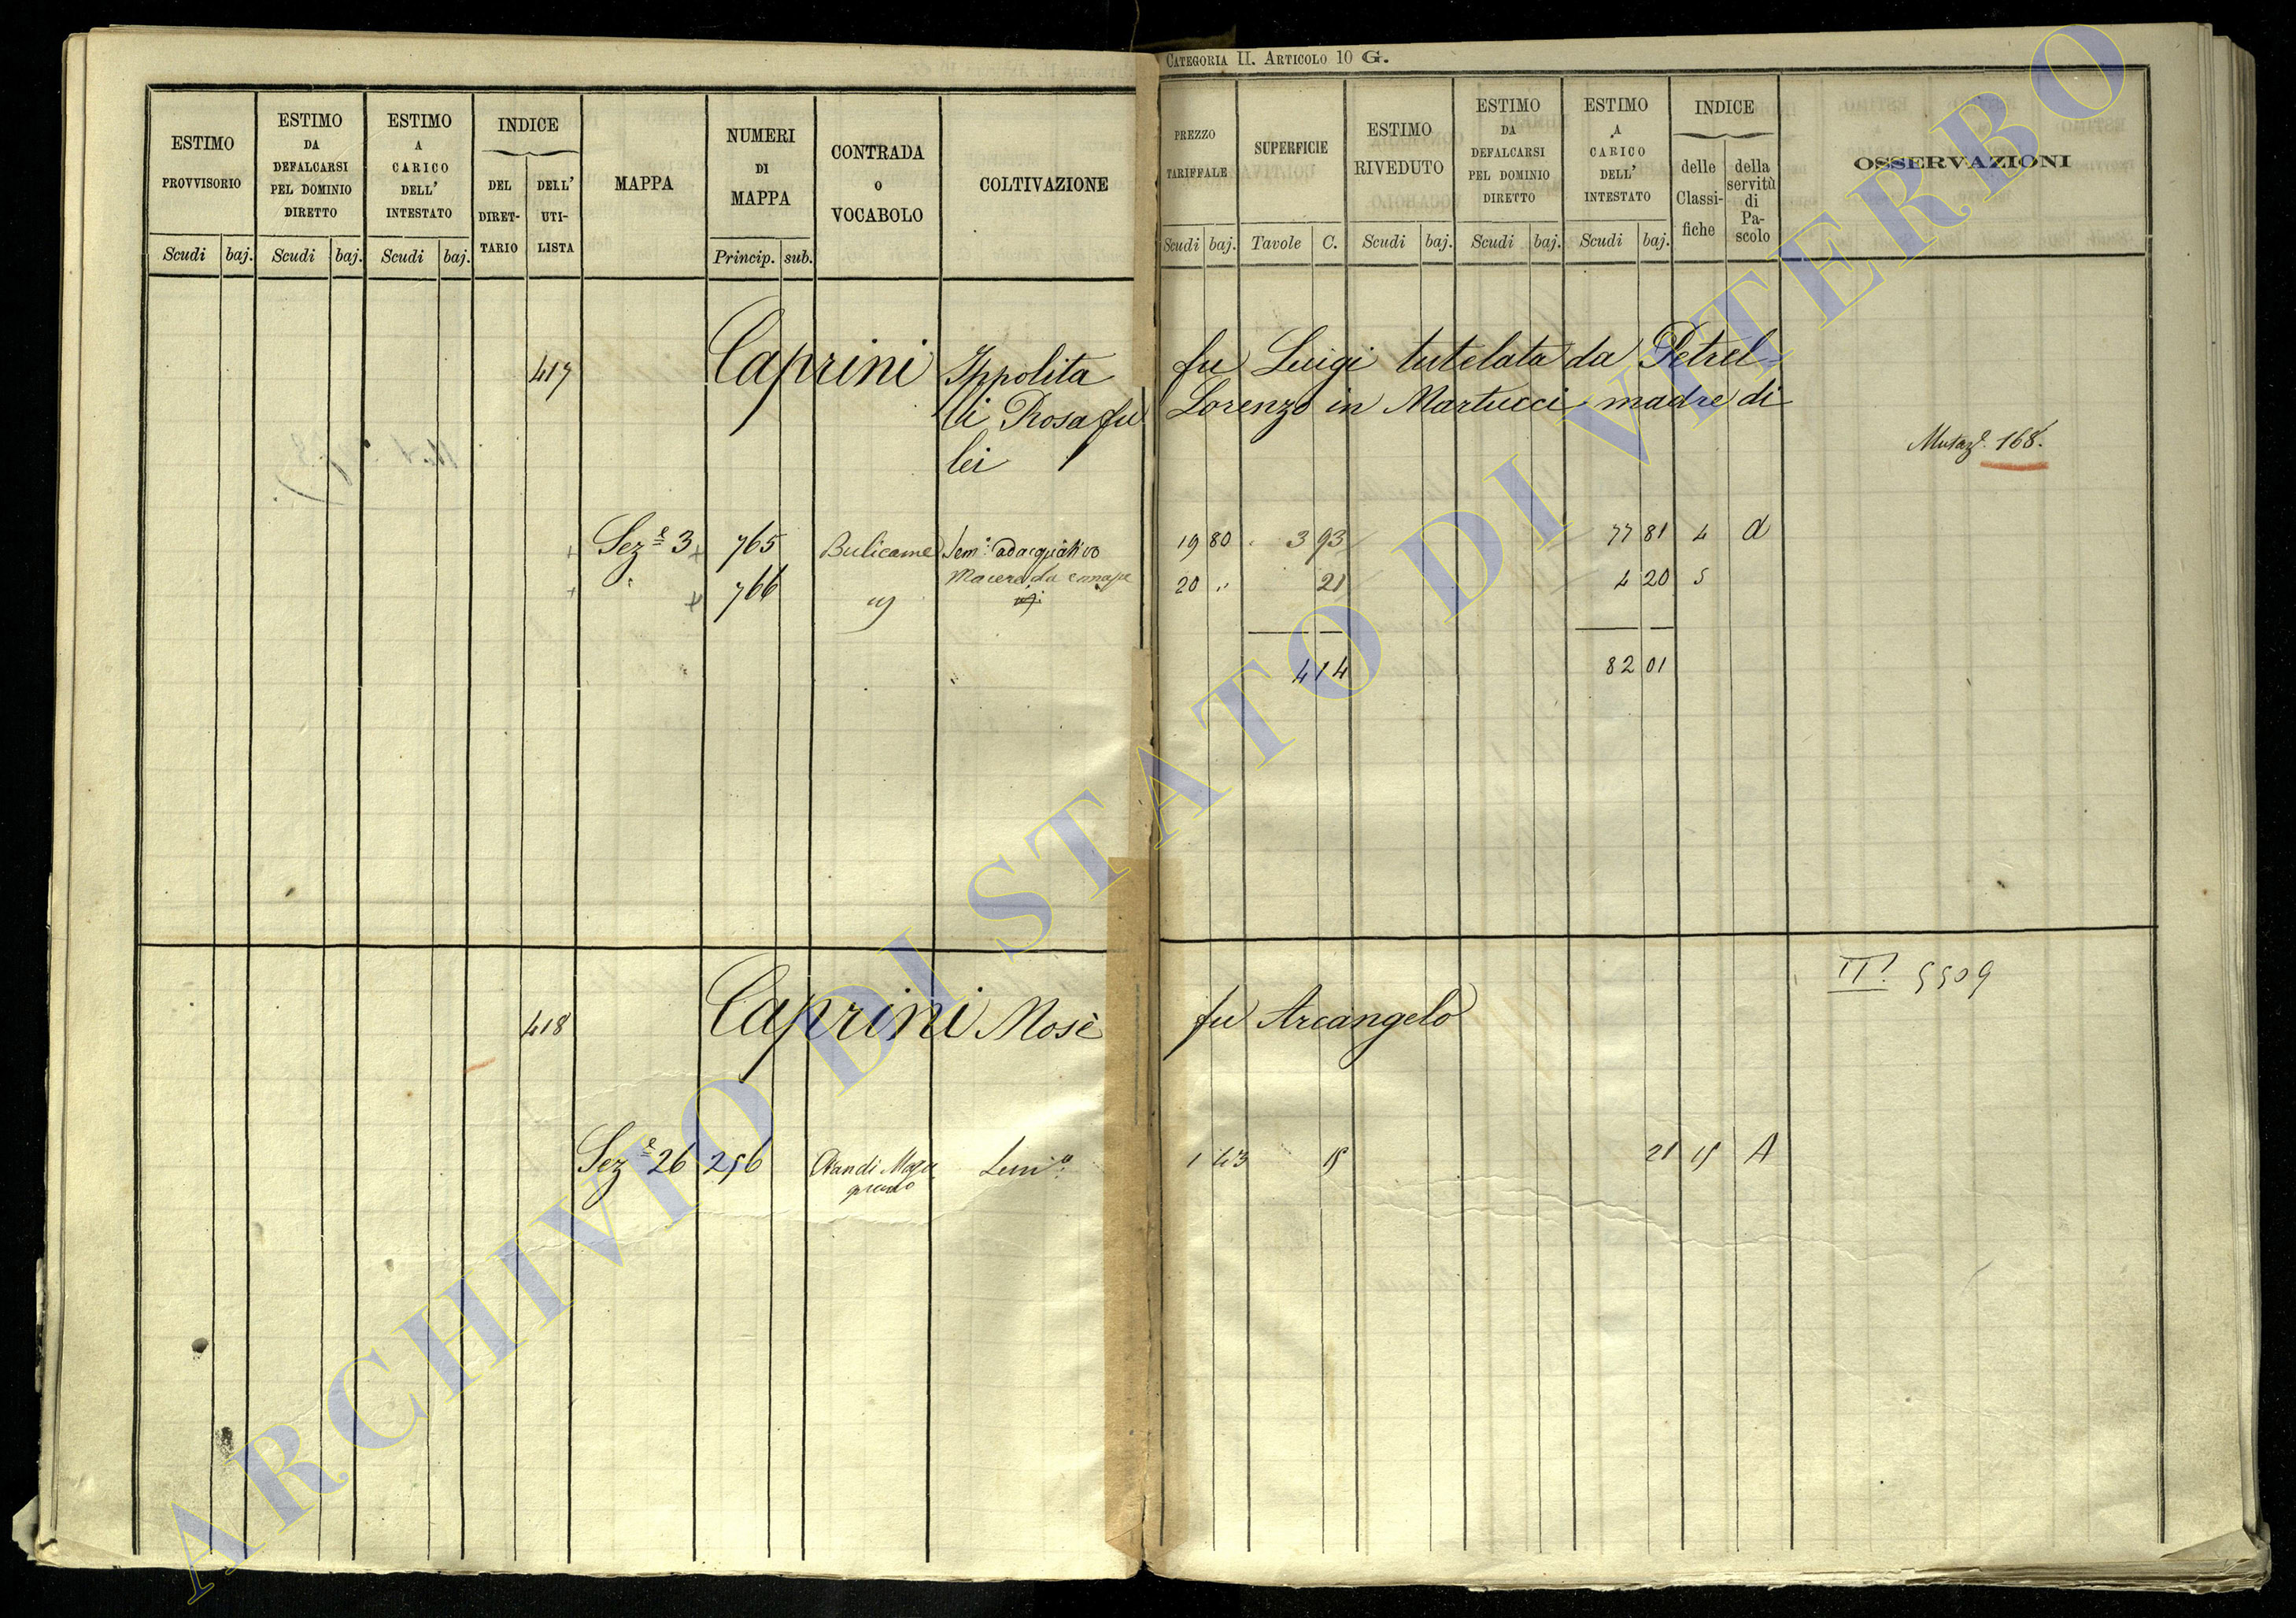 CATEGORIA II. ARTICOLO 10 G.
ESTIMO PROVVISORIO
Scudi baj.
ESTIMO DA DEFALCARSI PEL DOMINIO DIRETTO
Scudi baj.
ESTIMO A CARICO DELL' INTESTATO
Scudi baj.
INDICE
DEL DIRETTARIO
DELL' UTILISTA
MAPPA
NUMERI DI MAPPA
Princip. sub.
CONTRADA O VOCABOLO
COLTIVAZIONE
PREZZO TARIFFALE
Scudi baj.
SUPERFICIE
Tavole C.
ESTIMO RIVEDUTO
Scudi baj.
ESTIMO DA DEFALCARSI PEL DOMINIO DIRETTO
Scudi baj.
ESTIMO A CARICO DELL' INTESTATO
Scudi baj.
INDICE
delle Classifiche
della servitù di Pascolo
OSSERVAZIONI
417 Caprini Ippolita fu Luigi tutelata da Petrel-
li Rosa fu Lorenzo in Martucci madre di
lei
Mutaz.e 168.
Sez.e 3 765 Bulicame Sem.o adacquativo 19 80 3 93 77 81 4 a
" 766 Macero da canape 20 " 21 4 20 5
4 14 82 01
II. 5509
418 Caprini Mosè fu Arcangelo
Sez.e 26 256 Sem.o 1 43 15 21 15 A
ARCHIVIO DI STATO DI VITERBO